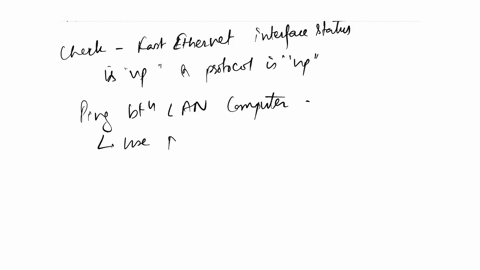 Check - Fast Ethernet interface status
is "up" & protocol is "up"
Ping btn LAN Computer -
↳ use